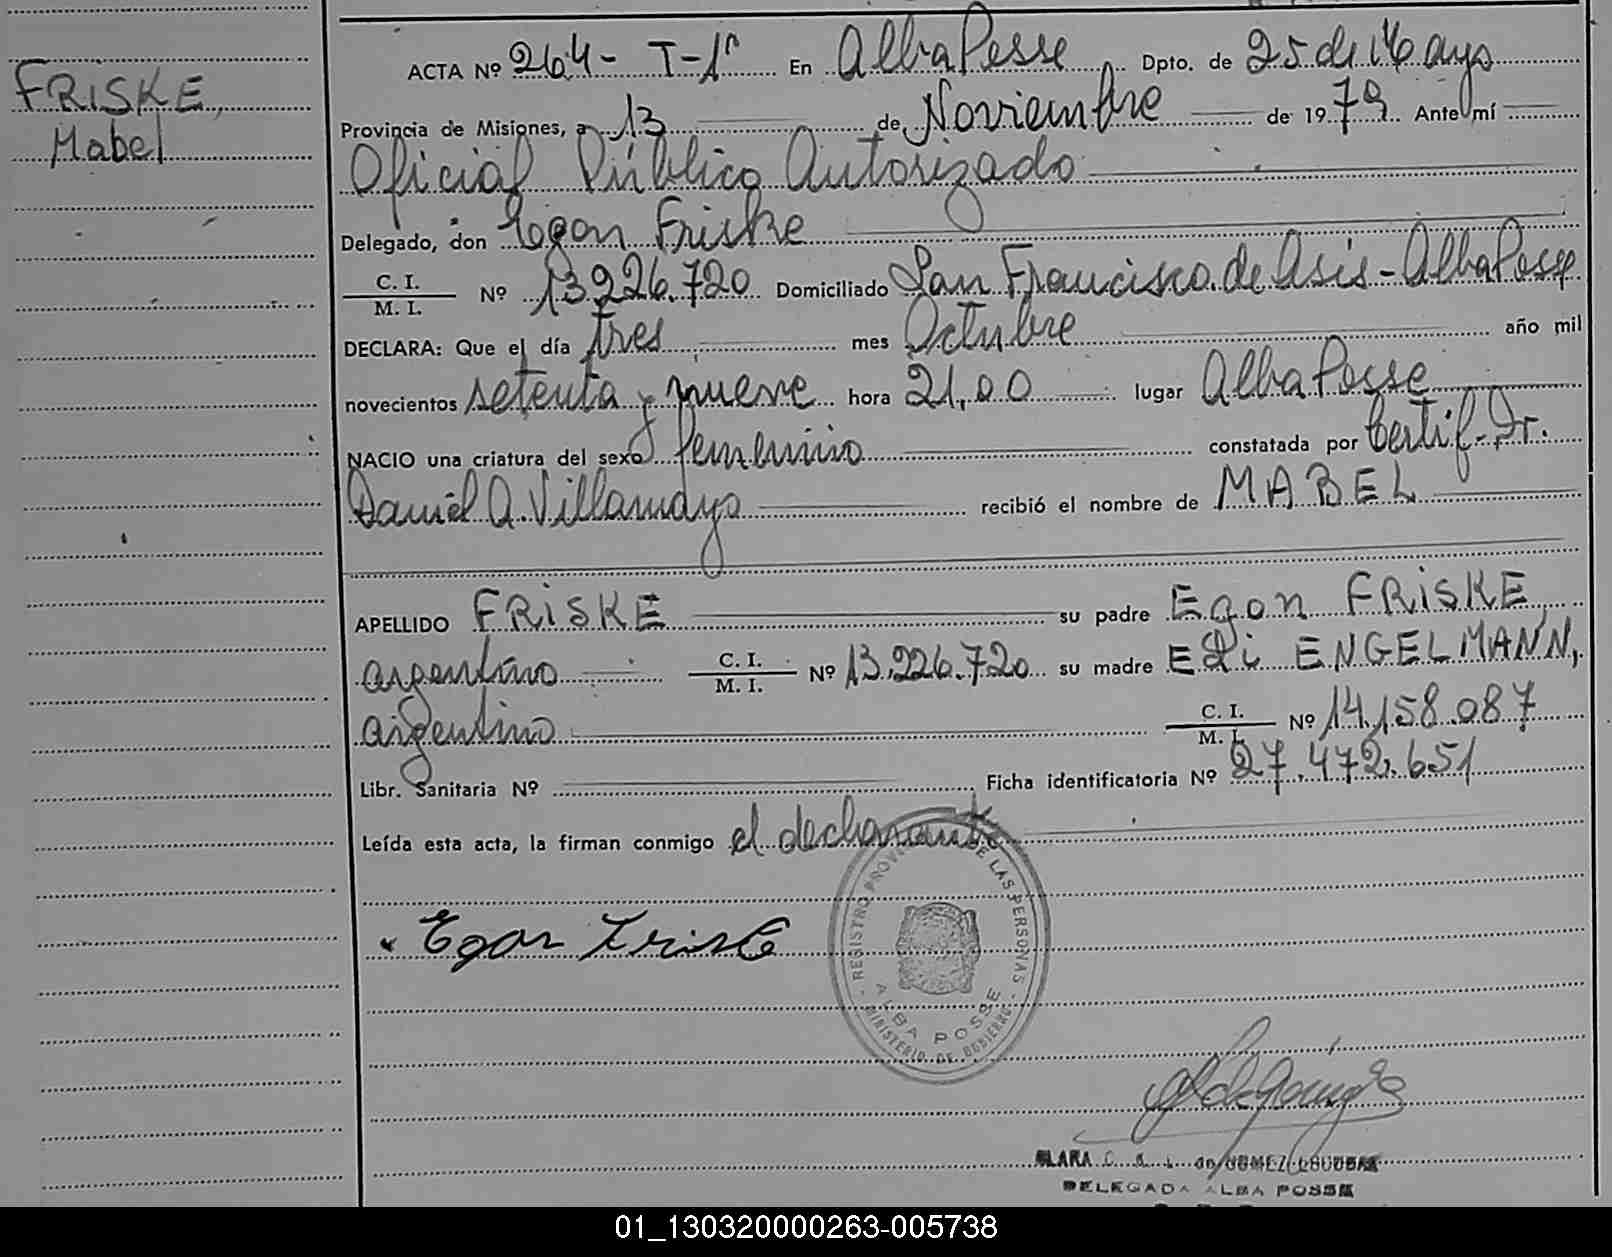 FRISKE,
Mabel
ACTA Nº 264- T-1º En Alba Posse, Dpto. de 25 de Mayo
Provincia de Misiones, a 13 de Noviembre de 1979. Ante mí
Oficial Público Autorizado
Delegado, don Egon Friske
C. I. / M. I. Nº 13.926.720 Domiciliado San Francisco de Asis - Alba Posse
DECLARA: Que el día tres mes Octubre año mil
novecientos setenta y nueve hora 21,00 lugar Alba Posse
NACIO una criatura del sexo femenino constatada por Certif. Dr.
Daniel A. Villamayo recibió el nombre de MABEL
APELLIDO FRISKE su padre Egon FRISKE,
argentino C. I. / M. I. Nº 13.926.720 su madre Edi ENGELMANN,
argentino C. I. / M. I. Nº 14.158.087
Libr. Sanitaria Nº Ficha identificatoria Nº 27.472.651
Leída esta acta, la firman conmigo el declarante
Egon Friske
- REGISTRO PROV DE LAS PERSONAS -
ALBA POSSE
MINISTERIO DE GOBIERNO
CLARA de GOMEZ ESCOBAR
DELEGADA ALBA POSSE
01_130320000263-005738